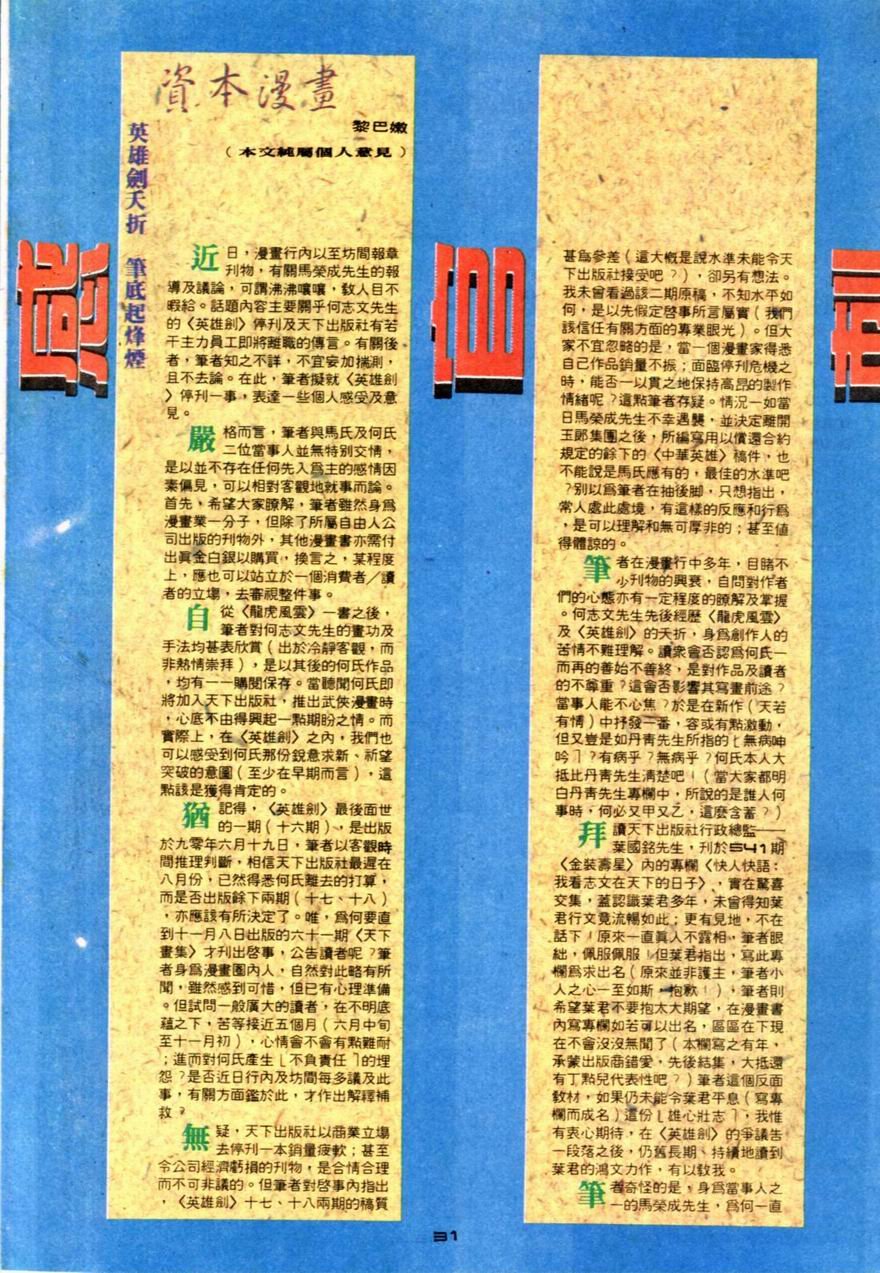 資本漫畫
黎巴嫩
（本文純屬個人意見）
英雄劍夭折　筆底起烽煙
感
官
近日，漫畫行內以至坊間報章
刊物，有關馬榮成先生的報
導及議論，可謂沸沸嚷嚷，敎人目不
暇給。話題內容主要關乎何志文先生
的〈英雄劍〉停刊及天下出版社有若
干主力員工即將離職的傳言。有關後
者，筆者知之不詳，不宜妄加揣測，
且不去論。在此，筆者擬就〈英雄劍
〉停刊一事，表達一些個人感受及意
見。
嚴格而言，筆者與馬氏及何氏
二位當事人並無特別交情，
是以並不存在任何先入爲主的感情因
素偏見，可以相對客觀地就事而論。
首先，希望大家瞭解，筆者雖然身爲
漫畫業一分子，但除了所屬自由人公
司出版的刊物外，其他漫畫書亦需付
出眞金白銀以購買，換言之，某程度
上，應也可以站立於一個消費者／讀
者的立場，去審視整件事。
自從〈龍虎風雲〉一書之後，
筆者對何志文先生的畫功及
手法均甚表欣賞（出於冷靜客觀，而
非熱情崇拜），是以其後的何氏作品
，均有一一購閱保存。當聽聞何氏即
將加入天下出版社，推出武俠漫畫時
，心底不由得興起一點期盼之情。而
實際上，在〈英雄劍〉之內，我們也
可以感受到何氏那份銳意求新、祈望
突破的意圖（至少在早期而言），這
點該是獲得肯定的。
猶記得，〈英雄劍〉最後面世
的一期（十六期），是出版
於九零年六月十九日，筆者以客觀時
間推理判斷，相信天下出版社最遲在
八月份，已然得悉何氏離去的打算，
而是否出版餘下兩期（十七、十八）
，亦應該有所決定了。唯，爲何要直
到十一月八日出版的六十一期〈天下
畫集〉才刊出啓事，公告讀者呢？筆
者身爲漫畫圈內人，自然對此略有所
聞，雖然感到可惜，但已有心理準備
。但試問一般廣大的讀者，在不明底
蘊之下，苦等接近五個月（六月中旬
至十一月初），心情會不會有點難耐
；進而對何氏產生「不負責任」的埋
怨？是否近日行內及坊間每多議及此
事，有關方面鑑於此，才作出解釋補
救？
無疑，天下出版社以商業立場
去停刊一本銷量疲軟；甚至
令公司經濟虧損的刊物，是合情合理
而不可非議的。但筆者對啓事內指出
，〈英雄劍〉十七、十八兩期的稿質
甚爲參差（這大槪是說水準未能令天
下出版社接受吧？），卻另有想法。
我未曾看過該二期原稿，不知水平如
何，是以先假定啓事所言屬實（我們
該信任有關方面的專業眼光）。但大
家不宜忽略的是，當一個漫畫家得悉
自己作品銷量不振；面臨停刊危機之
時，能否一以貫之地保持高昂的製作
情緒呢？這點筆者存疑。情況一如當
日馬榮成先生不幸遇襲，並決定離開
玉郞集團之後，所編寫用以償還合約
規定的餘下的〈中華英雄〉稿件，也
不能說是馬氏應有的，最佳的水準吧
？別以爲筆者在抽後脚，只想指出，
常人處此處境，有這樣的反應和行爲
，是可以理解和無可厚非的；甚至値
得體諒的。
筆者在漫畫行中多年，目睹不
少刊物的興衰，自問對作者
們的心態亦有一定程度的瞭解及掌握
。何志文先生先後經歷〈龍虎風雲〉
及〈英雄劍〉的夭折，身爲創作人的
苦情不難理解。讀衆會否認爲何氏一
而再的善始不善終，是對作品及讀者
的不尊重？這會否影響其寫畫前途？
當事人能不心焦？於是在新作（天若
有情）中抒發一番，容或有點激動，
但又豈是如丹靑先生所指的「無病呻
吟」？有病乎？無病乎？何氏本人大
抵比丹靑先生淸楚吧！（當大家都明
白丹靑先生專欄中，所說的是誰人何
事時，何必又甲又乙，這麼含蓄？）
拜讀天下出版社行政總監──
葉國銘先生，刊於541期
〈金裝壽星〉內的專欄〈快人快語：
我看志文在天下的日子〉，實在驚喜
交集，蓋認識葉君多年，未曾得知葉
君行文竟流暢如此；更有見地，不在
話下！原來一直眞人不露相，筆者眼
絀，佩服佩服！但葉君指出，寫此專
欄爲求出名（原來並非護主，筆者小
人之心一至如斯，抱歉！），筆者則
希望葉君不要抱太大期望，在漫畫書
內寫專欄如若可以出名，區區在下現
在不會沒沒無聞了（本欄寫之有年，
承蒙出版商錯愛，先後結集，大抵還
有丁點兒代表性吧？）筆者這個反面
敎材，如果仍未能令葉君平息（寫專
欄而成名）這份「雄心壯志」，我惟
有衷心期待，在〈英雄劍〉的爭議告
一段落之後，仍舊長期、持續地讀到
葉君的鴻文力作，有以敎我。
筆者奇怪的是，身爲當事人之
一的馬榮成先生，爲何一直
31